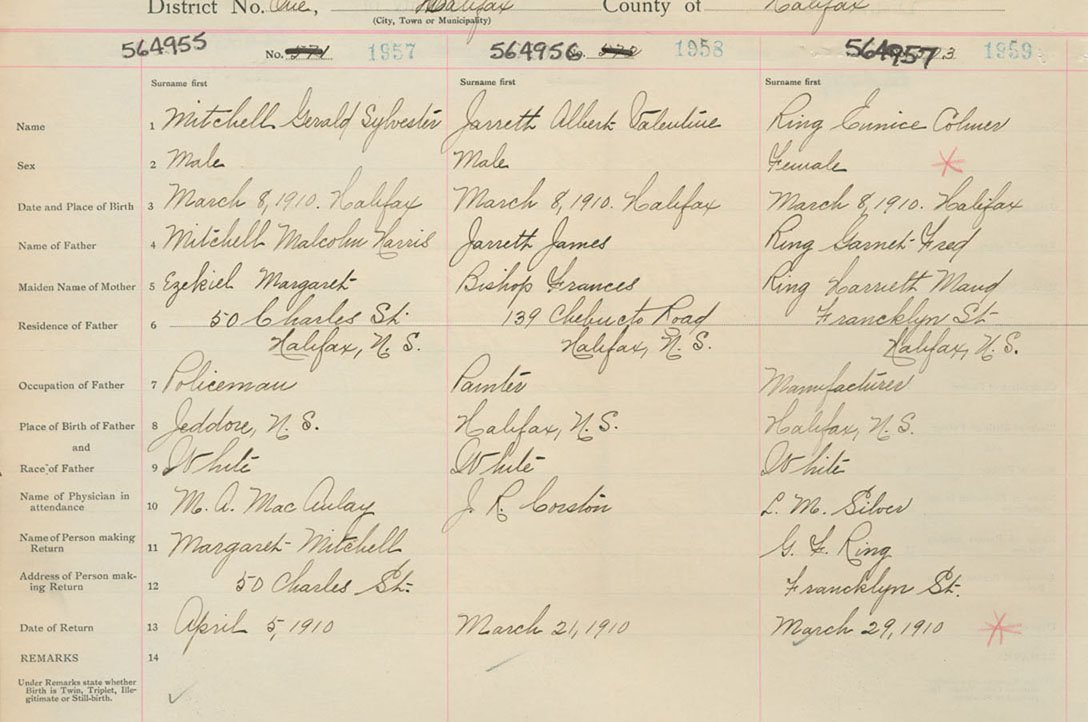 District No. One, Halifax County of Halifax
(City, Town or Municipality)
564955 No. 571 1957 564956 No. 572 1958 564957 573 1959
Surname first Surname first Surname first
Name 1 Mitchell Gerald Sylvester Jarrett Albert Valentine Ring Eunice Colmer
Sex 2 Male Male Female
Date and Place of Birth 3 March 8, 1910. Halifax March 8, 1910. Halifax March 8, 1910. Halifax
Name of Father 4 Mitchell Malcolm Harris Jarrett James Ring Garnet Fred
Maiden Name of Mother 5 Ezekiel Margaret Bishop Frances Ring Harriett Maud
Residence of Father 6 50 Charles St. 139 Chebucto Road Francklyn St
Halifax, N. S. Halifax, N. S. Halifax, N. S.
Occupation of Father 7 Policeman Painter Manufacturer
Place of Birth of Father 8 Jeddore, N. S. Halifax, N. S. Halifax, N. S.
and
Race of Father 9 White White White
Name of Physician in
attendance 10 M. A. MacAulay J. R. Corston L. M. Silver
Name of Person making
Return 11 Margaret Mitchell G. F. Ring
Address of Person mak-
ing Return 12 50 Charles St. Francklyn St.
Date of Return 13 April 5, 1910 March 21, 1910 March 29, 1910
REMARKS 14
Under Remarks state whether
Birth is Twin, Triplet, Ille-
gitimate or Still-birth.